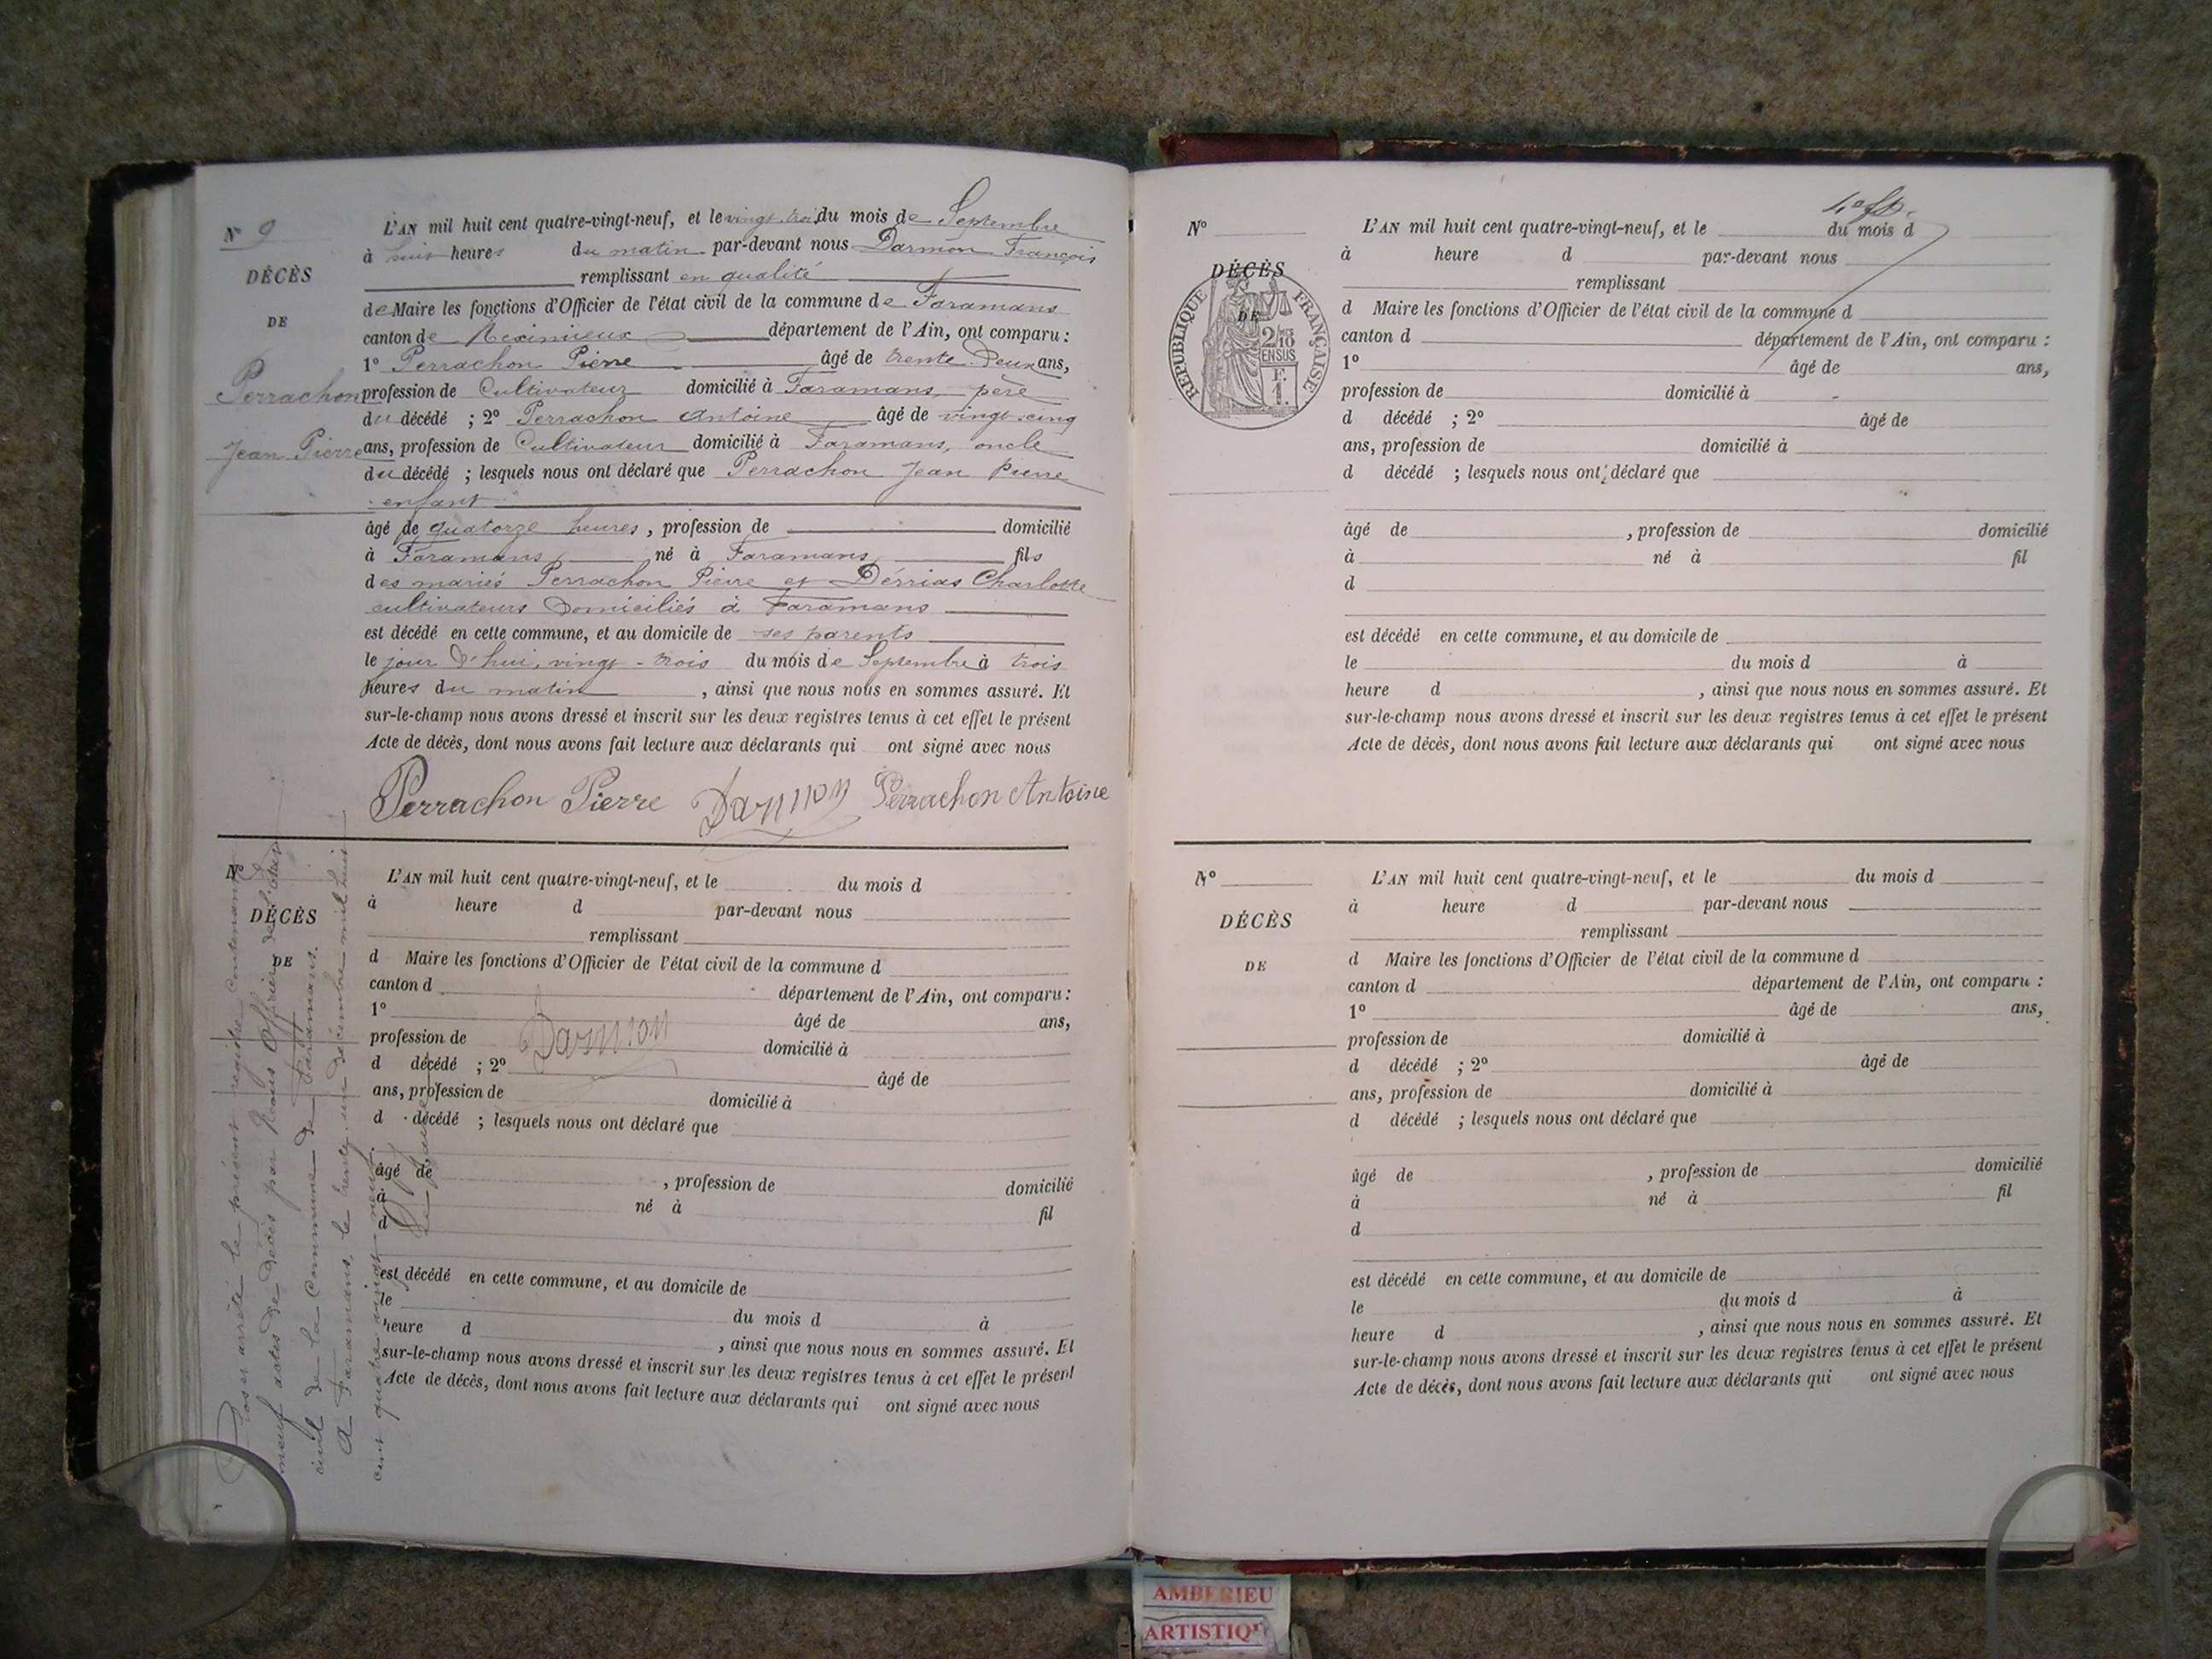 N° 9
DÉCÈS
DE
Perrachon
Jean Pierre
L'AN mil huit cent quatre-vingt-neuf, et le vingt trois du mois de Septembre
à huit heures du matin par-devant nous Darmon François
remplissant en qualité
de Maire les fonctions d'Officier de l'état civil de la commune de Faramans
canton de Meximieux département de l'Ain, ont comparu :
1° Perrachon Pierre âgé de trente-deux ans,
profession de Cultivateur domicilié à Faramans, père
du décédé ; 2° Perrachon Antoine âgé de vingt-cinq
ans, profession de Cultivateur domicilié à Faramans, oncle
du décédé ; lesquels nous ont déclaré que Perrachon Jean Pierre
enfant
âgé de quatorze heures, profession de domicilié
à Faramans, né à Faramans, fils
des mariés Perrachon Pierre et Dérrias Charlotte
cultivateurs domiciliés à Faramans
est décédé en cette commune, et au domicile de ses parents
le jour d'hui, vingt-trois du mois de Septembre à trois
heures du matin, ainsi que nous nous en sommes assuré. Et
sur-le-champ nous avons dressé et inscrit sur les deux registres tenus à cet effet le présent
Acte de décès, dont nous avons fait lecture aux déclarants qui ont signé avec nous
Perrachon Pierre Darmon Perrachon Antoine
N°
DÉCÈS
DE
L'AN mil huit cent quatre-vingt-neuf, et le du mois d
à heure d par-devant nous
remplissant
d Maire les fonctions d'Officier de l'état civil de la commune d
canton d département de l'Ain, ont comparu :
1° âgé de ans,
profession de domicilié à
d décédé ; 2° âgé de
ans, profession de domicilié à
d décédé ; lesquels nous ont déclaré que
âgé de , profession de domicilié
à né à fil
d
est décédé en cette commune, et au domicile de
le du mois d à
heure d , ainsi que nous nous en sommes assuré. Et
sur-le-champ nous avons dressé et inscrit sur les deux registres tenus à cet effet le présent
Acte de décès, dont nous avons fait lecture aux déclarants qui ont signé avec nous
Clos et arrêté le présent registre contenant
neuf actes de décès par Nous Officier de l'état
civil de la Commune de Faramans.
A Faramans, le trente-un décembre mil huit
cent quatre-vingt-neuf.
Darmon
N°
DÉCÈS
DE
RÉPUBLIQUE FRANÇAISE
2/10 EN SUS
F.
1.
L'AN mil huit cent quatre-vingt-neuf, et le du mois d
à heure d par-devant nous
remplissant
d Maire les fonctions d'Officier de l'état civil de la commune d
canton d département de l'Ain, ont comparu :
1° âgé de ans,
profession de domicilié à
d décédé ; 2° âgé de
ans, profession de domicilié à
d décédé ; lesquels nous ont déclaré que
âgé de , profession de domicilié
à né à fil
d
est décédé en cette commune, et au domicile de
le du mois d à
heure d , ainsi que nous nous en sommes assuré. Et
sur-le-champ nous avons dressé et inscrit sur les deux registres tenus à cet effet le présent
Acte de décès, dont nous avons fait lecture aux déclarants qui ont signé avec nous
N°
DÉCÈS
DE
L'AN mil huit cent quatre-vingt-neuf, et le du mois d
à heure d par-devant nous
remplissant
d Maire les fonctions d'Officier de l'état civil de la commune d
canton d département de l'Ain, ont comparu :
1° âgé de ans,
profession de domicilié à
d décédé ; 2° âgé de
ans, profession de domicilié à
d décédé ; lesquels nous ont déclaré que
âgé de , profession de domicilié
à né à fil
d
est décédé en cette commune, et au domicile de
le du mois d à
heure d , ainsi que nous nous en sommes assuré. Et
sur-le-champ nous avons dressé et inscrit sur les deux registres tenus à cet effet le présent
Acte de décès, dont nous avons fait lecture aux déclarants qui ont signé avec nous
AMBERIEU
ARTISTIQ